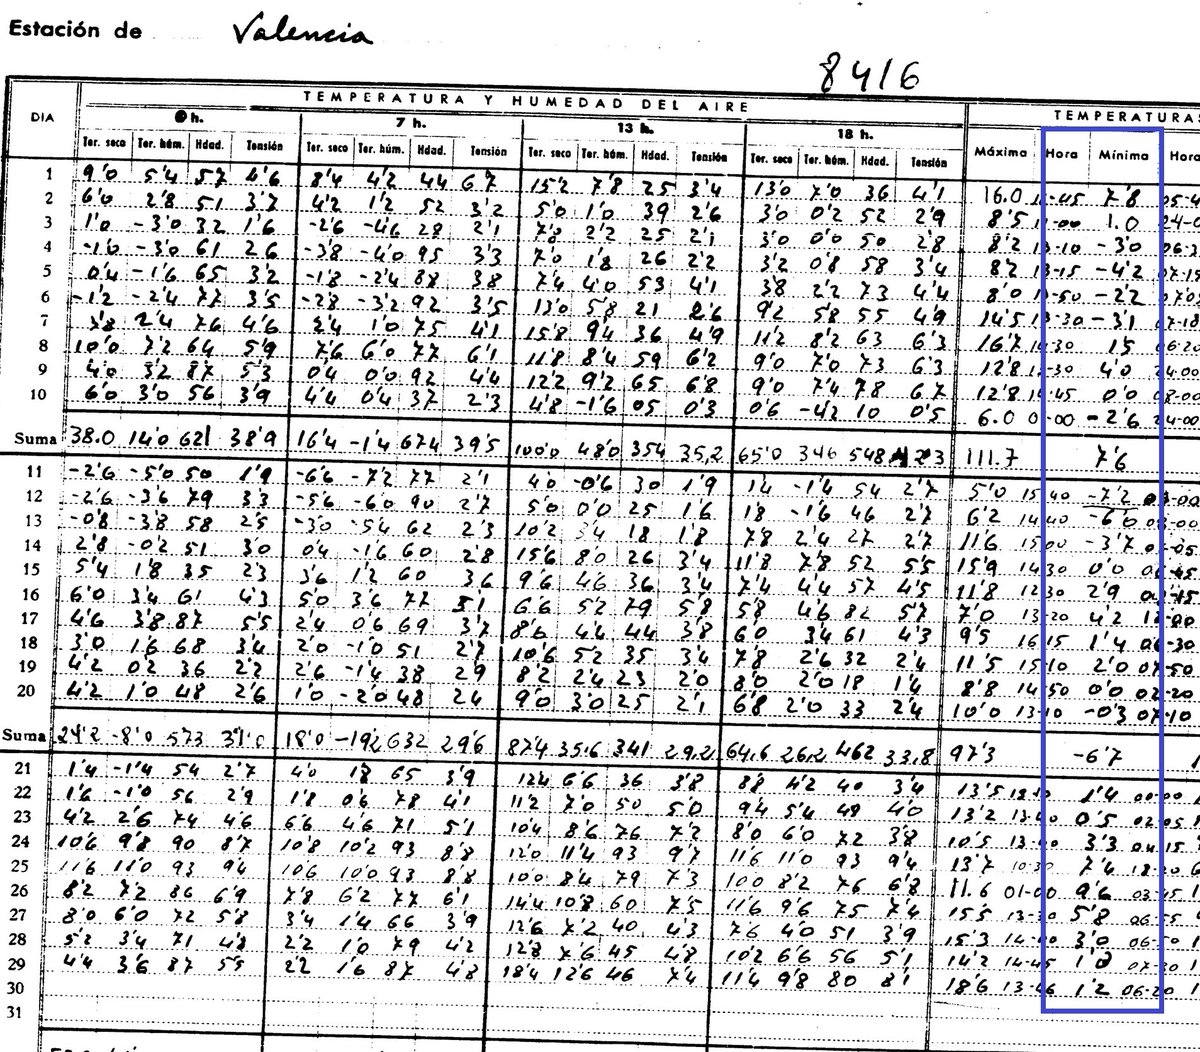 Estación de Valencia
8416
TEMPERATURA Y HUMEDAD DEL AIRE TEMPERATURAS
DIA 0 h. 7 h. 13 h. 18 h. Máxima Hora Mínima Hora
Ter. seco Ter. húm. Hdad. Tensión Ter. seco Ter. húm. Hdad. Tensión Ter. seco Ter. húm. Hdad. Tensión Ter. seco Ter. húm. Hdad. Tensión
1 9'0 5'4 57 4'6 8'4 4'2 44 6'7 15'2 7'8 25 3'4 13'0 7'0 36 4'1 16.0 7'8
2 6'0 2'8 51 3'7 4'2 1'2 52 3'2 5'0 1'0 39 2'6 3'0 0'2 52 2'9 8'5 1.0
3 1'0 -3'0 32 1'6 -2'6 -4'6 28 2'1 7'8 2'2 25 2'1 3'0 0'0 50 2'8 8'2 -3'0
4 -1'0 -3'0 61 2'6 -3'8 -4'0 95 3'3 7'0 1'8 26 2'2 3'2 0'8 58 3'4 8'2 -4'2
5 0'4 -1'6 65 3'2 -1'8 -2'4 88 3'8 7'4 4'0 53 4'1 3'8 2'2 73 4'4 8'0 -2'2
6 -1'2 -2'4 77 3'5 -2'8 -3'2 92 3'5 13'0 5'8 21 2'6 9'2 5'8 55 4'9 14'5 -3'1
7 3'8 2'4 76 4'6 2'4 1'0 75 4'1 15'8 9'4 36 4'9 11'2 8'2 63 6'3 16'7 1'5
8 10'0 7'2 64 5'9 7'6 6'0 77 6'1 11'8 8'4 59 6'2 9'0 7'0 73 6'3 12'8 4'0
9 4'0 3'2 87 5'3 0'4 0'0 92 4'4 12'2 9'2 65 6'8 9'0 7'4 78 6'7 12'8 0'0
10 6'0 3'0 56 3'9 4'4 0'4 37 2'3 4'8 -1'6 05 0'3 0'6 -4'2 10 0'5 6.0 00-00 -2'6 24-00
Suma 38.0 14'0 621 38'9 16'4 -1'4 674 39'5 100'0 48'0 354 35,2 65'0 34'6 548 111.7 7'6
11 -2'6 -5'0 50 1'9 -6'6 -7'2 77 2'1 4'0 -0'6 30 1'9 1'4 -1'4 54 2'7 5'0 15-40 -7'2
12 -2'6 -3'6 79 3'3 -5'6 -6'0 90 2'7 5'0 0'0 25 1'6 1'8 -1'6 46 2'7 6'2 14-40 -6'0
13 -0'8 -3'8 58 2'5 -3'0 -5'4 62 2'3 10'2 3'4 18 1'8 7'8 2'4 27 2'7 11'6 15-00 -3'7
14 2'8 -0'2 51 3'0 0'4 -1'6 60 2'8 15'6 8'0 26 3'4 11'8 7'8 52 5'5 15'9 14-30 0'0
15 5'4 1'8 35 2'3 3'6 1'2 60 3'6 9'6 4'6 36 3'4 7'4 4'4 57 4'5 11'8 12-30 2'9
16 6'0 3'4 61 4'3 5'0 3'6 77 5'1 6'6 5'2 79 5'8 5'8 4'6 82 5'7 7'0 13-20 4'2
17 4'6 3'8 87 5'5 2'4 0'6 69 3'7 8'6 4'4 44 3'8 6'0 3'4 61 4'3 9'5 16-15 1'4
18 3'0 1'6 68 3'4 2'0 -1'0 51 2'7 10'6 5'2 35 3'4 7'8 2'6 32 2'4 11'5 15-10 2'0
19 4'2 0'2 36 2'2 2'6 -1'4 38 2'9 8'2 2'4 23 2'0 8'0 2'0 18 1'4 8'8 14-50 0'0 02-20
20 4'2 1'0 48 2'6 1'0 -2'0 48 2'4 9'0 3'0 25 2'1 6'8 2'0 33 2'4 10'0 13-10 -0'3 07-10
Suma 24'2 -8'0 573 31'0 18'0 -19'2 632 29'6 87'4 35.6 341 29,2 64,6 26,2 462 33.8 97'3 -6'7
21 1'4 -1'4 54 2'7 4'0 1'8 65 3'9 12'4 6'6 36 3'8 8'8 4'2 40 3'4 13'5 1'4
22 1'6 -1'0 56 2'9 1'8 0'6 78 4'1 11'2 7'0 50 5'0 9'4 5'4 48 4'0 13'2 0'5
23 4'2 2'6 74 4'6 6'6 4'6 71 5'1 10'4 8'6 76 7'2 8'0 6'0 72 3'8 10'5 3'3
24 10'6 9'8 90 8'7 10'8 10'2 93 8'8 12'0 11'4 93 9'7 11'6 11'0 93 9'4 13'7 10-30 7'4
25 11'6 11'0 93 9'4 10'6 10'0 93 8'8 10'0 8'4 79 7'3 10'0 8'2 76 6'8 11.6 01-00 9'6
26 8'2 7'2 86 6'9 7'8 6'2 77 6'1 14'4 10'8 60 7'5 11'6 9'6 75 7'4 15'5 13-30 5'8
27 8'0 6'0 72 5'8 3'4 1'4 66 3'9 12'6 7'2 40 4'3 7'6 4'0 51 3'9 15'3 3'0
28 5'2 3'4 71 4'8 2'2 1'0 79 4'2 12'8 7'6 45 4'8 10'2 6'6 56 5'1 14'2 14-45 1'0
29 4'4 3'6 87 5'5 2'2 1'6 87 4'8 18'4 12'6 46 7'4 11'4 9'8 80 8'1 18'6 1'2 06-20
30
31